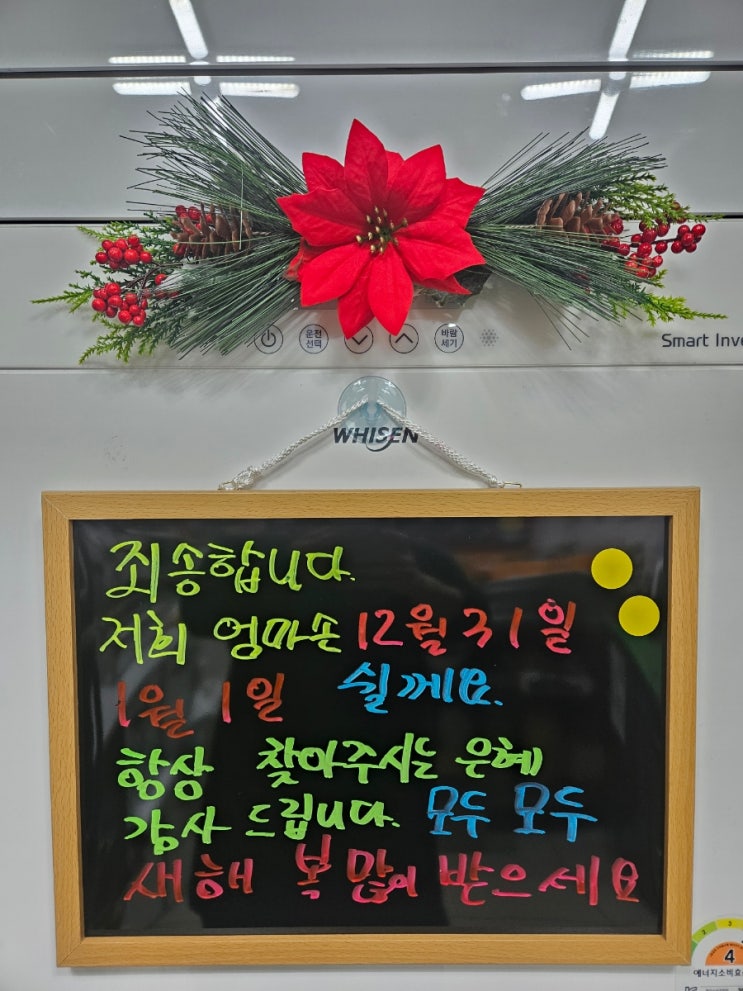 운전
선택
바람
세기
Smart Inve
WHISEN
죄송합니다.
저희 엄마손 12월 31일
1월 1일 쉴께요.
항상 찾아주시는 은혜
감사 드립니다. 모두 모두
새해 복 많이 받으세요
2
3
4
에너지소비효